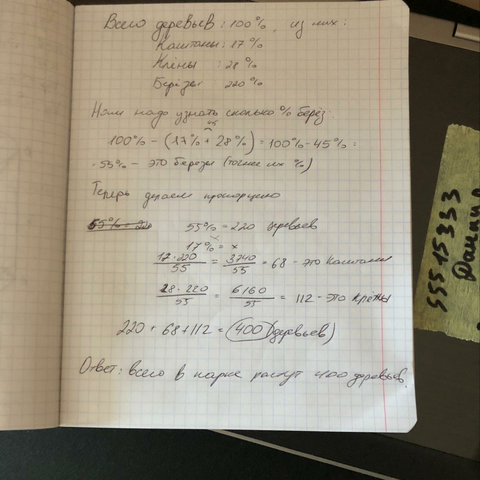 Всего деревьев: 100%, из них:
Каштаны: 17%
Клёны: 28%
Берёзы 220%
Нам надо узнать сколько % берёз:
100% - (17% + 28%) = 100% - 45% =
55% - это березы (точнее их %)
Теперь делаем пропорцию
55% = 220 деревьев
17% = x
17 · 220 / 55 = 3740 / 55 = 68 - это каштаны
28 · 220 / 55 = 6160 / 55 = 112 - это клёны
220 + 68 + 112 = 400 (деревьев)
Ответ: всего в парке растут 400 деревьев.
55515353